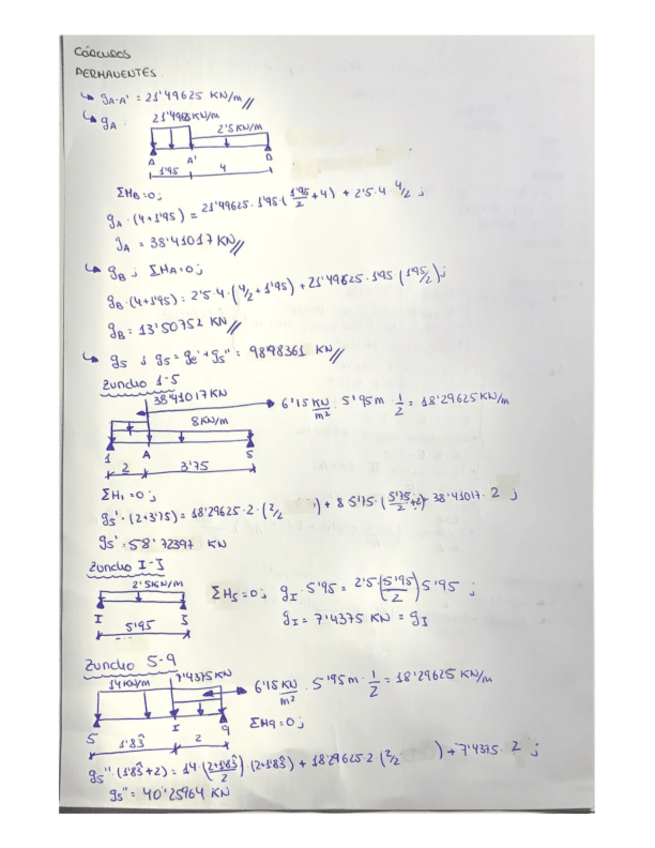 CÁLCULOS
PERMANENTES.
↳ gA-A' = 21'49625 KN/m //
↳ gA :
21'4968KN/m
2'5KN/m
A A' B
1'95 4
ΣMB=0;
gA · (4+1'95) = 21'49625 · 1'95 · (1'95/2 + 4) + 2'5 · 4 · 4/2 ;
gA = 38'41017 KN //
↳ gB ; ΣMA=0;
gB · (4+1'95) = 2'5 · 4 · (4/2 + 1'95) + 21'49625 · 1'95 · (1'95/2);
gB = 13'50752 KN //
↳ g5 ; g5 = ge' + g5'' = 98'98361 KN //
Zuncho 1-5
38'41017 KN
6'15 KN/m² · 5'95m · 1/2 = 18'29625 KN/m
8KN/m
1 A 5
2 3'75
ΣM1 = 0 ;
g5' · (2+3'75) = 18'29625 · 2 · (2/2) + 8 5'75 · (5'75/2) 38'41017 · 2 ;
g5' = 58'72397 KN
Zuncho I-J
2'5KN/m
I J
5'95
ΣMJ = 0; gI · 5'95 = 2'5 · (5'95/2) 5'95 ;
gI = 7'4375 KN = gJ
Zuncho 5-9
14KN/m 7'4375KN
6'15 KN/m² · 5'95m · 1/2 = 18'29625 KN/m
5 I 9
ΣM9=0;
1'83̂ 2
g5'' · (1'83̂+2) = 14 · (2+1'83̂/2) · (2+1'83̂) + 18'29625 · 2 (2/2) + 7'4375 · 2 ;
g5'' = 40'25964 KN